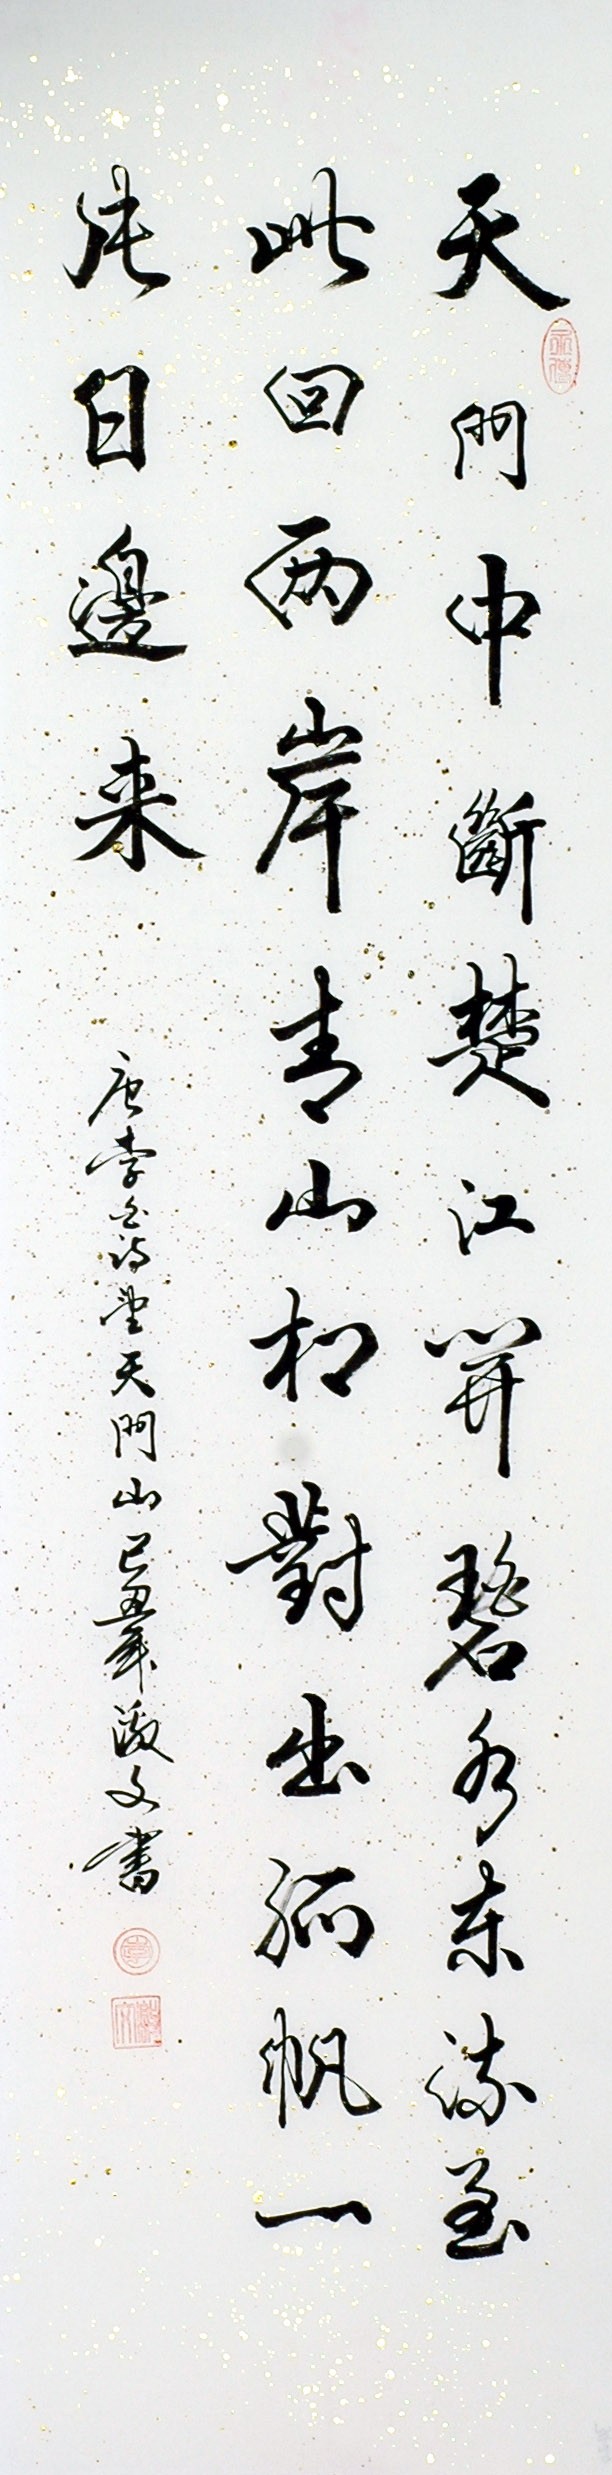 天門中斷楚江開碧水东流至
此回两岸青山相對出孤帆一
片日邊来
唐李白詩望天門山己丑年溦文書